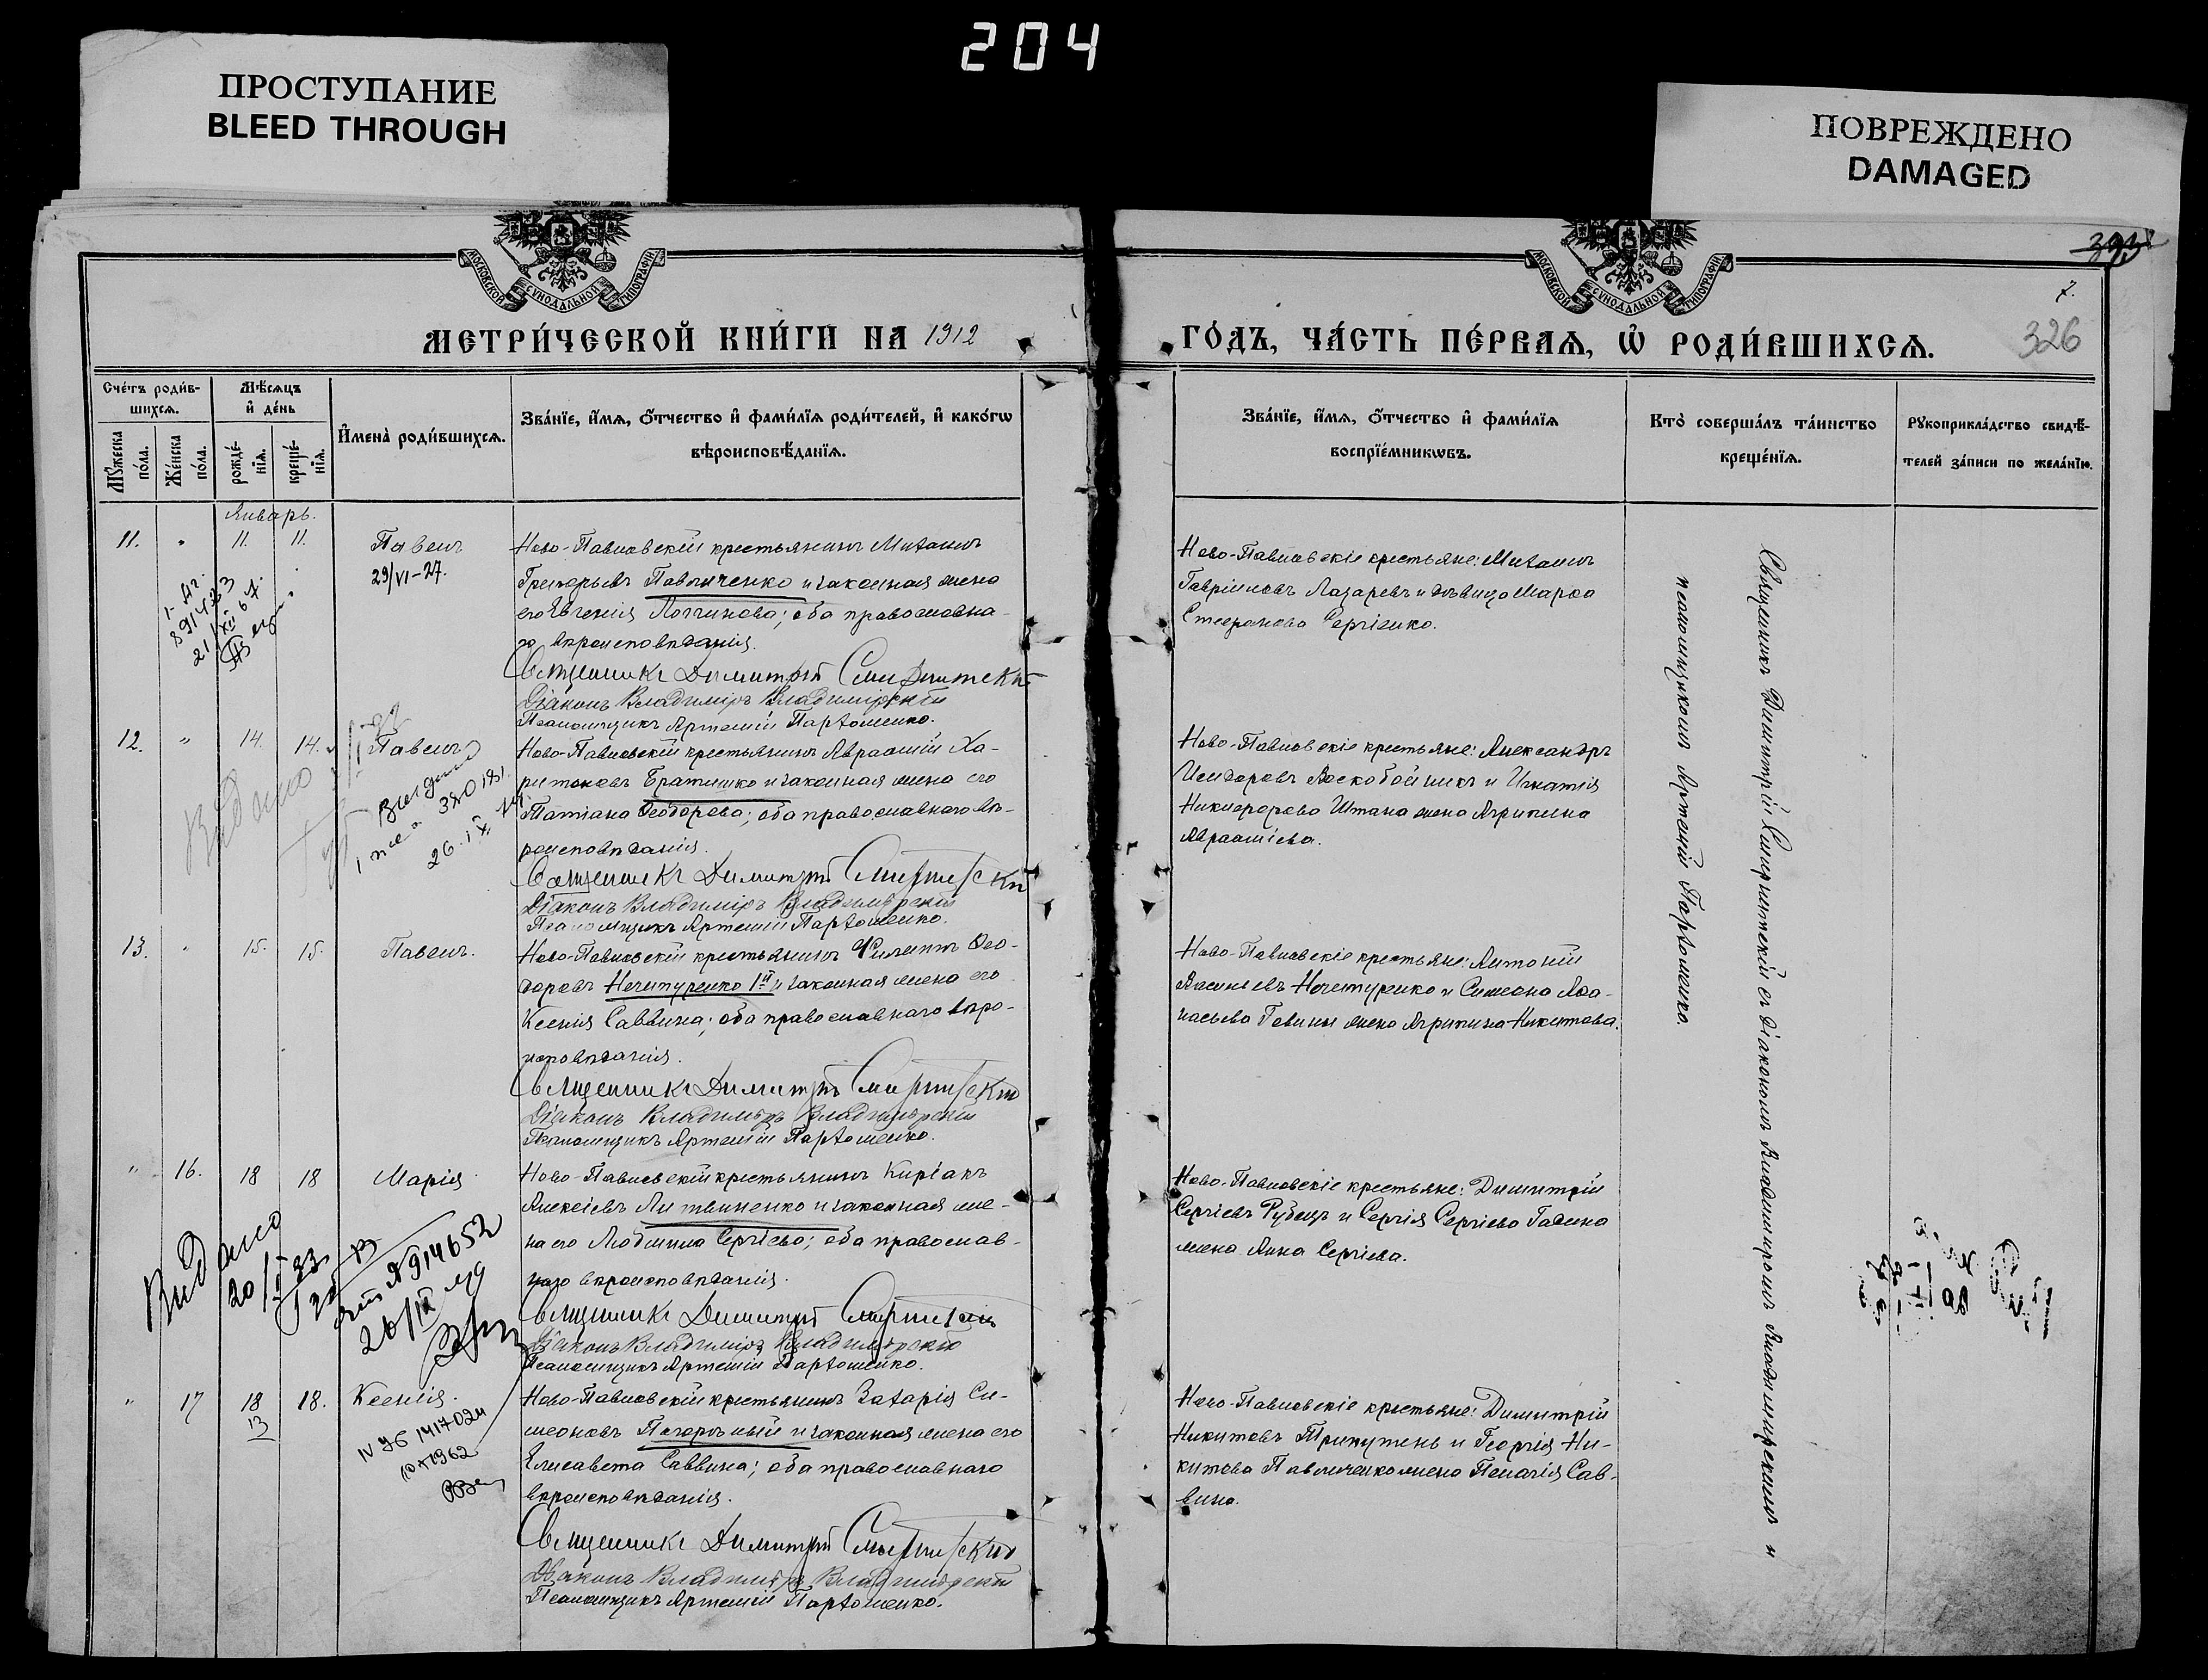 204
ПРОСТУПАНИЕ
BLEED THROUGH
ПОВРЕЖДЕНО
DAMAGED
МОСКОВСКОЙ СѴНОДАЛЬНОЙ ТИПОГРАФІИ
МОСКОВСКОЙ СѴНОДАЛЬНОЙ ТИПОГРАФІИ
393
7.
326
МЕТРИ́ЧЕСКОЙ КНИ́ГИ НА 1912
ГО́ДЪ, ЧА́СТЬ ПЕ́РВАЯ, Ѽ РОДИ́ВШИХСѦ.
Сче́тъ роди́в-
шихсѧ.
Мѣ́сѧцъ
и҆ де́нь
Мꙋ́жеска
по́ла.
Же́нска
по́ла.
рожде́-
нїѧ.
креще́-
нїѧ.
И҆мена̀ роди́вшихсѧ.
Зва́нїе, и҆́мѧ, ѻ҆́тчество и҆ фами́лїѧ роди́телей, и҆ како́гѡ
вѣроисповѣ́данїѧ.
Зва́нїе, и҆́мѧ, ѻ҆́тчество и҆ фами́лїѧ
воспрїе́мникѡвъ.
Кто̀ соверша́лъ та́инство
креще́нїѧ.
Рꙋкоприкла́дство свидѣ́-
телей за́писи по жела́нїю.
Январь.
11. " 11. 11. Павелъ
29/VI-27.
Ново-Павловскій крестьянинъ Михаилъ
Григорьевъ Павличенко и законная жена
его Евгенія Логгинова; оба православна-
го вѣроисповѣданія.
Священникъ Димитрій
Діаконъ Владиміръ Владимірскій
Псаломщикъ Артемій Пархоменко.
Ново-Павловскіе крестьяне: Михаилъ
Гавріиловъ Лазаревъ и дѣвица Марѳа
Стефанова Сергіенко.
12. " 14. 14. Павелъ
Видано
26.
Ново-Павловскій крестьянинъ Авраамій Ха-
ритоновъ Братишко и законная жена его
Татіана Ѳеодорова; оба православнаго вѣ-
роисповѣданія.
Священникъ Димитрій
Діаконъ Владиміръ Владимірскій
Псаломщикъ Артемій Пархоменко.
Ново-Павловскіе крестьяне: Александръ
Исидоровъ Воскобойникъ и Игнатія
Никифорова Штана жена Агрипина
Авраамiева.
13. " 15. 15. Павелъ.
Ново-Павловскій крестьянинъ Филиппъ Ѳео-
доровъ Нечитуренко 1й и законная жена его
Ксенія Саввина; оба православнаго вѣро-
исповѣданія.
Священникъ Димитрій
Діаконъ Владиміръ Владимірскій
Псаломщикъ Артемій Пархоменко.
Ново-Павловскіе крестьяне: Антоній
Нечитуренко и Симеона Аѳа-
насьева жена Агрипина Никитова.
" 16. 18 18 Марія
Видано
№ 914652
Ново-Павловскій крестьянинъ Киріакъ
Алексіевъ Литвиненко и законная же-
на его Людмила Сергіева; оба православ-
наго вѣроисповѣданія.
Священникъ Димитрій
Діаконъ Владиміръ Владимірскій
Псаломщикъ Артемій Пархоменко.
Ново-Павловскіе крестьяне: Димитрій
Сергіевъ Рубецъ и Сергія Сергіева
жена Анна Сергіева.
" 17 18 18. Ксенія.
13
IV УБ 1417024
1962
Ново-Павловскій крестьянинъ Захарія Си-
меоновъ Погорѣлый и законная жена его
Елисавета Саввина; оба православнаго
вѣроисповѣданія.
Священникъ Димитрій
Діаконъ Владиміръ Владимірскій
Псаломщикъ Артемій Пархоменко.
Ново-Павловскіе крестьяне: Димитрій
Никитовъ Трипутень и Георгія Ни-
китова Павличенко жена Пелагія Сав-
вина.
Священникъ Димитрій съ діакономъ Владиміромъ Владимірскимъ и
псаломщикомъ Артемій Пархоменко.